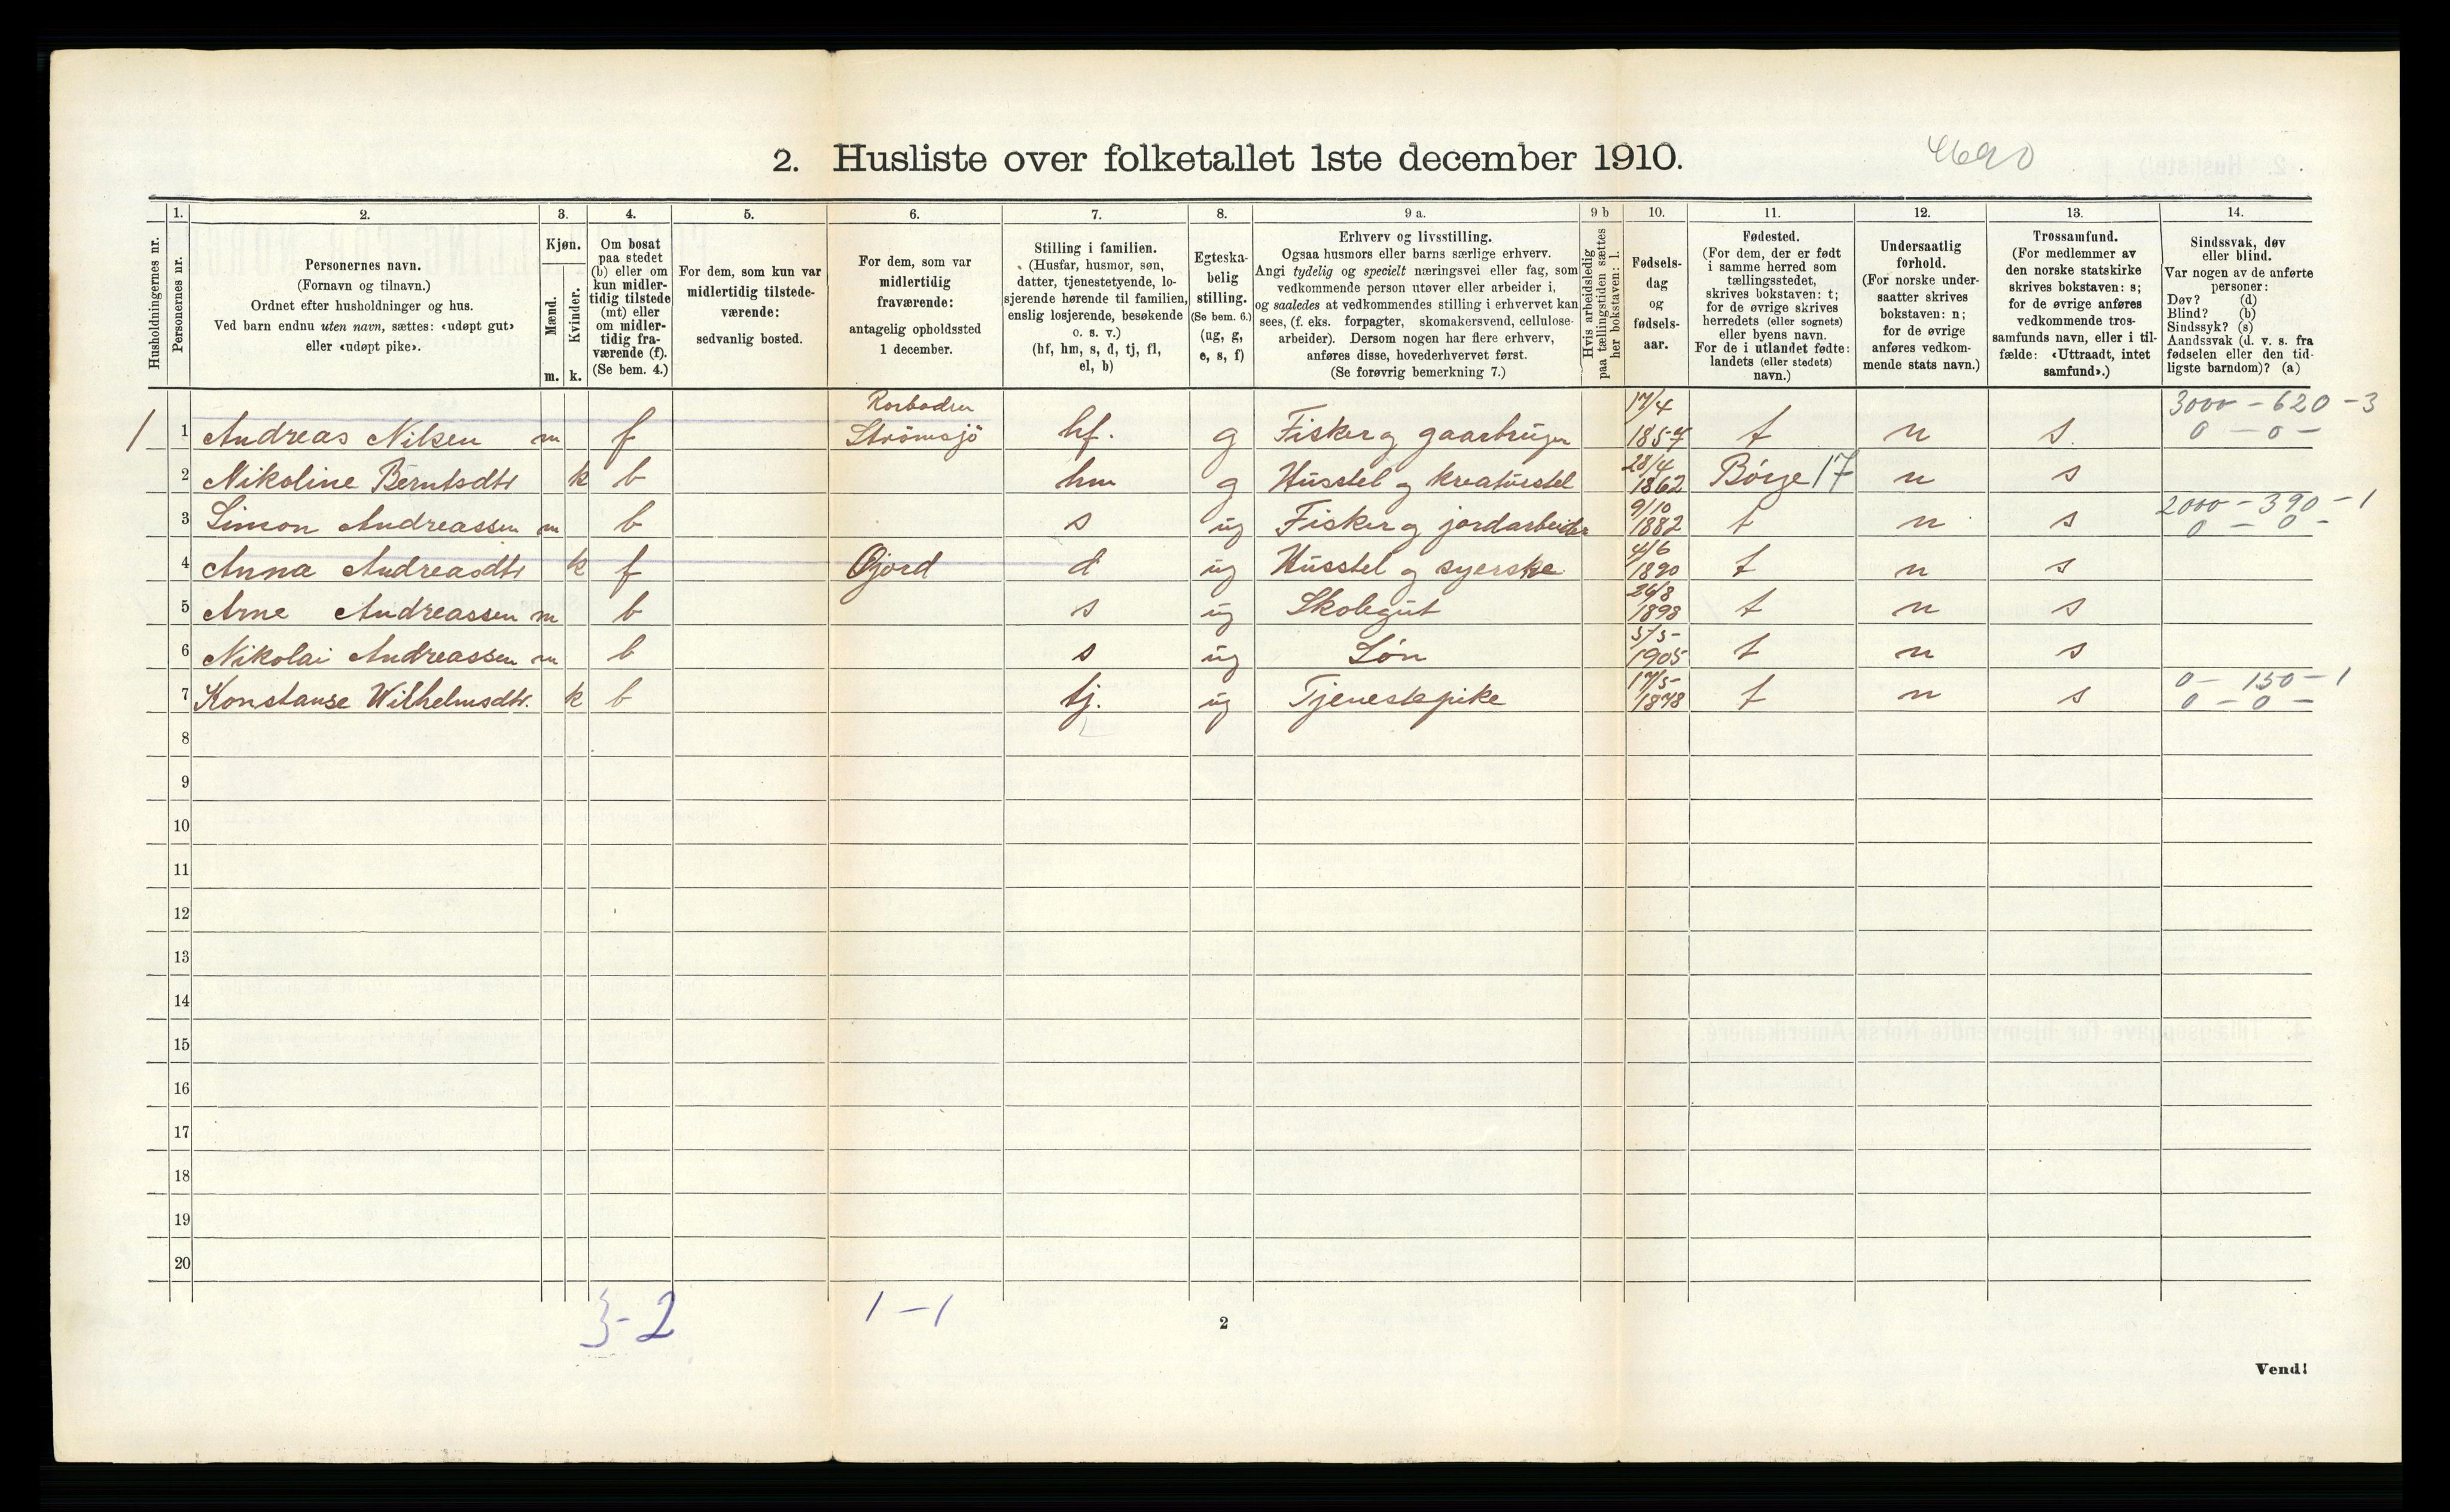 2. Husliste over folketallet 1ste december 1910.
4690
Husholdningernes nr.
1.
Personernes nr.
2.
Personernes navn.
(Fornavn og tilnavn.)
Ordnet efter husholdninger og hus.
Ved barn endnu uten navn, sættes: «udøpt gut»
eller «udøpt pike».
3.
Kjøn.
Mænd.
Kvinder.
m. k.
4.
Om bosat
paa stedet
(b) eller om
kun midler-
tidig tilstede
(mt) eller
om midler-
tidig fra-
værende (f).
(Se bem. 4.)
5.
For dem, som kun var
midlertidig tilstede-
værende:
sedvanlig bosted.
6.
For dem, som var
midlertidig
fraværende:
antagelig opholdssted
1 december.
7.
Stilling i familien.
(Husfar, husmor, søn,
datter, tjenestetyende, lo-
sjerende hørende til familien,
enslig losjerende, besøkende
o. s. v.)
(hf, hm, s, d, tj, fl,
el, b)
8.
Egteska-
belig
stilling.
(Se bem. 6.)
(ug, g,
e, s, f)
9 a.
Erhverv og livsstilling.
Ogsaa husmors eller barns særlige erhverv.
Angi tydelig og specielt næringsvei eller fag, som
vedkommende person utøver eller arbeider i,
og saaledes at vedkommendes stilling i erhvervet kan
sees, (f. eks. forpagter, skomakersvend, cellulose-
arbeider). Dersom nogen har flere erhverv,
anføres disse, hovederhvervet først.
(Se forøvrig bemerkning 7.)
9 b
Hvis arbeidsledig
paa tællingstiden sættes
her bokstaven: l.
10.
Fødsels-
dag
og
fødsels-
aar.
11.
Fødested.
(For dem, der er født
i samme herred som
tællingsstedet,
skrives bokstaven: t;
for de øvrige skrives
herredets (eller sognets)
eller byens navn.
For de i utlandet fødte:
landets (eller stedets)
navn.)
12.
Undersaatlig
forhold.
(For norske under-
saatter skrives
bokstaven: n;
for de øvrige
anføres vedkom-
mende stats navn.)
13.
Trossamfund.
(For medlemmer av
den norske statskirke
skrives bokstaven: s;
for de øvrige anføres
vedkommende tros-
samfunds navn, eller i til-
fælde: «Uttraadt, intet
samfund».)
14.
Sindssvak, døv
eller blind.
Var nogen av de anførte
personer:
Døv? (d)
Blind? (b)
Sindssyk? (s)
Aandssvak (d. v. s. fra
fødselen eller den tid-
ligste barndom)? (a)
Rorboden 17/4 3000 - 620 - 3
1 1 Andreas Nilsen m f Strömsjö hf. g Fisker og gaarbruger 1857 t n s. 0 - 0 -
28/4
2 Nikoline Berntsdtr k b hm g Husstel og kreaturstel 1862 Börge 17 n s
9/10 2000 - 390 - 1
3 Simon Andreassen m b s ug Fisker og jordarbeider 1882 t n s 0 - 0 -
4/6
4 Anna Andreasdtr k f Gjord d ug Husstel og syerske 1890 t n s
26/8
5 Arne Andreassen m b s ug Skolegut 1898 t n s
5/5
6 Nikolai Andreassen m b s ug Sön 1905 t n s
17/5 0 - 150 - 1
7 Konstanse Wilhelmsdtr. k b tj. ug Tjenestepike 1878 t n s 0 - 0 -
8
9
10
11
12
13
14
15
16
17
18
19
20
3-2 1-1
2
Vend!